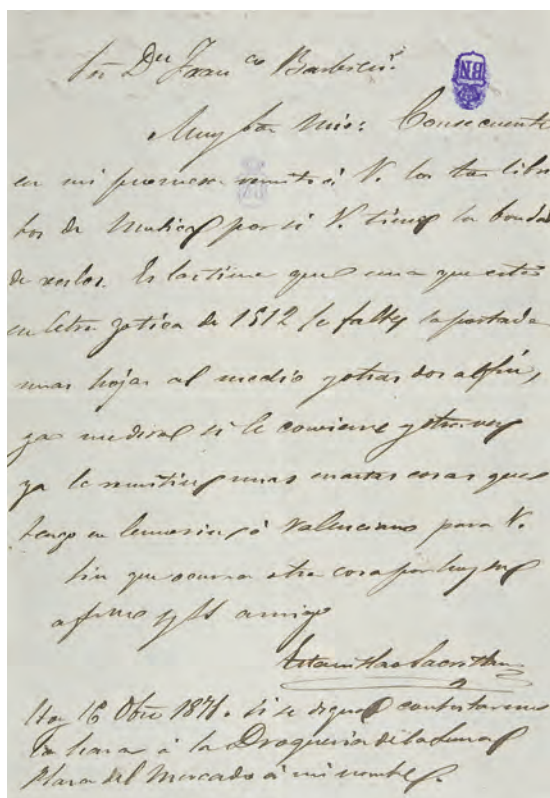 Sor Dn Franco Barbieri.
BN
Muy Sor mio: Consecuente
en mi promesa remito á V. los tres libri
tos de Musica por si V. tiene la bondad
de verlos. Es lastima que una que esta
en letra gotica de 1512 le falte la portada
unas hojas al medio y otras dos al fin,
ya me dira si le conviene y otra vez
ya le remitire unas cuantas cosas que
tengo en lemosin ó Valenciano para V.
Sin que ocurra otra cosa por hoy me
afmo y SS amigo
Estanislao Sacristan
Hoy 16 Obre 1871. Si se digna contestarme
lo hara á la Drogueria de la Luna
Plaza del Mercado á mi nombre.